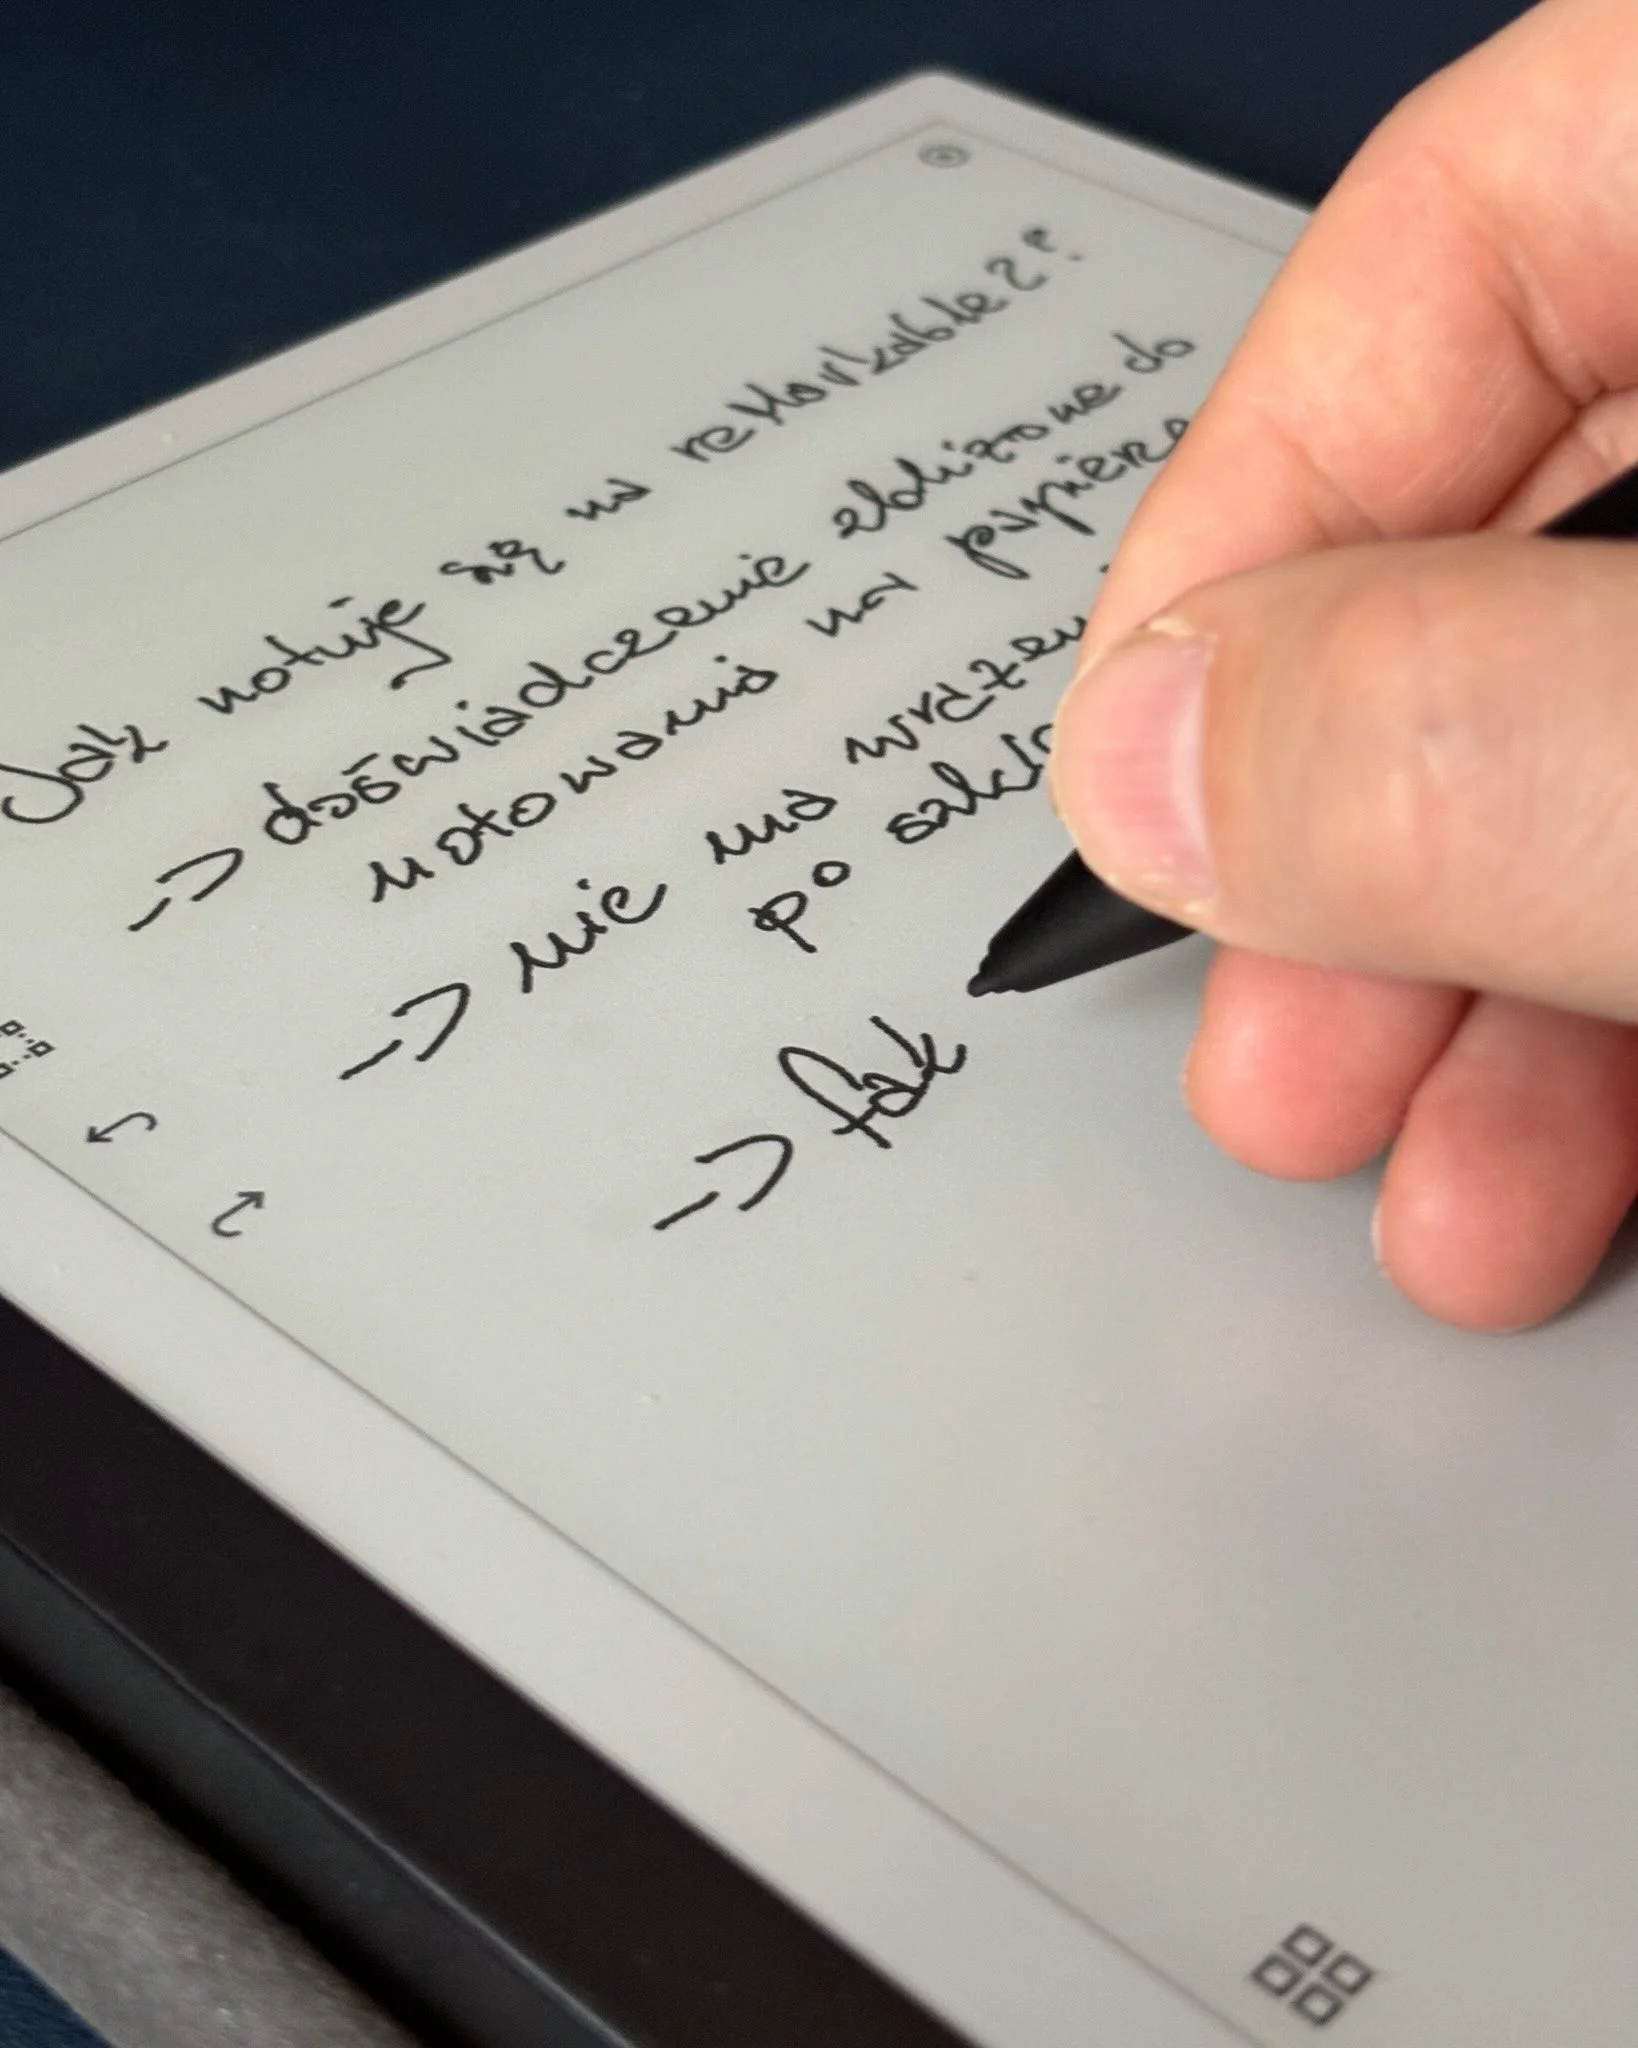 Jak notuje się na reMarkable 2?
-> doświadczenie zbliżone do
notowania na papierze
-> nie ma wrażen
po szkl
-> fak